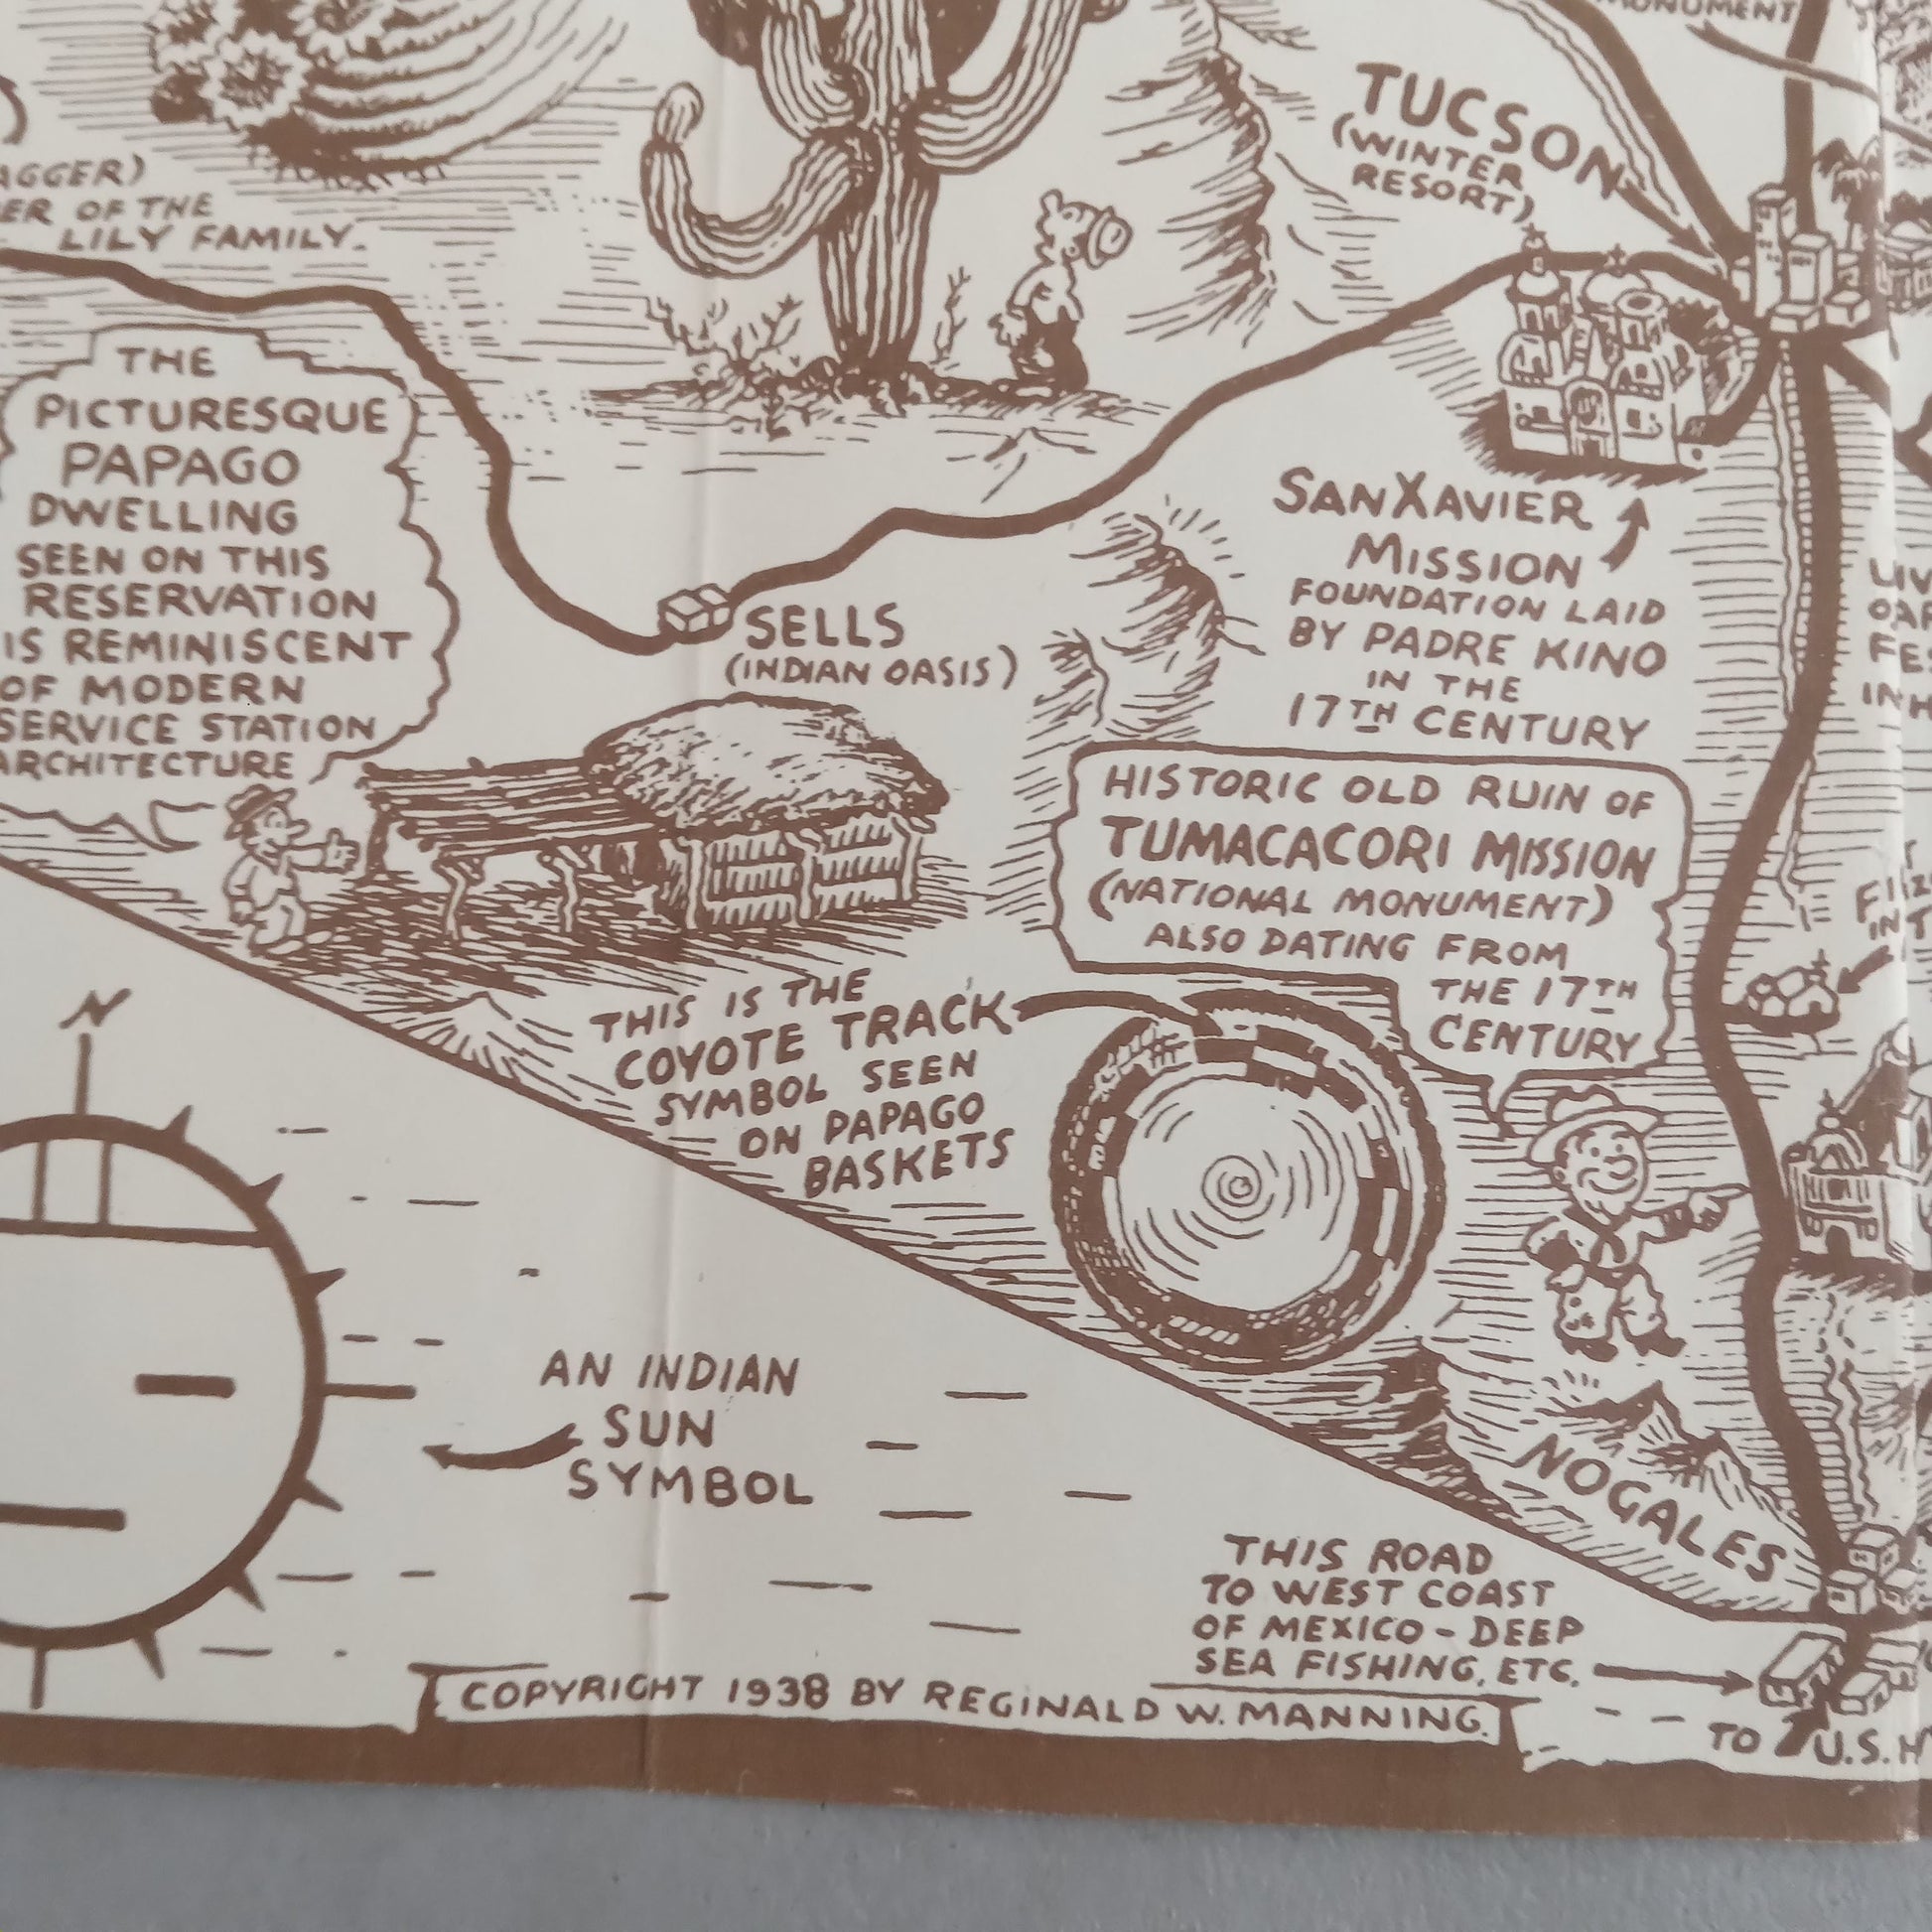 MONUMENT
TUCSON
(WINTER
RESORT)
OF THE
LILY FAMILY.
THE
PICTURESQUE
PAPAGO
DWELLING
SEEN ON THIS
RESERVATION
IS REMINISCENT
OF MODERN
SERVICE STATION
ARCHITECTURE
SELLS
(INDIAN OASIS)
SAN XAVIER
MISSION
FOUNDATION LAID
BY PADRE KINO
IN THE
17TH CENTURY
HISTORIC OLD RUIN OF
TUMACACORI MISSION
(NATIONAL MONUMENT)
ALSO DATING FROM
THE 17TH
CENTURY
THIS IS THE
COYOTE TRACK
SYMBOL SEEN
ON PAPAGO
BASKETS
N
AN INDIAN
SUN
SYMBOL
NOGALES
THIS ROAD
TO WEST COAST
OF MEXICO - DEEP
SEA FISHING, ETC.
COPYRIGHT 1938 BY REGINALD W. MANNING.
TO U.S.